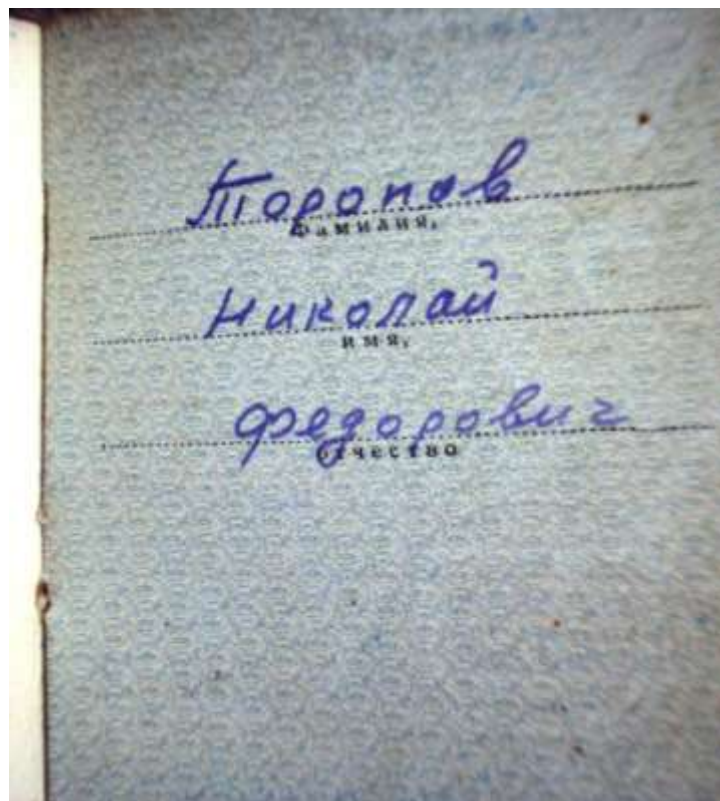 Торопов
фамилия,
Николай
имя,
Федорович
отчество